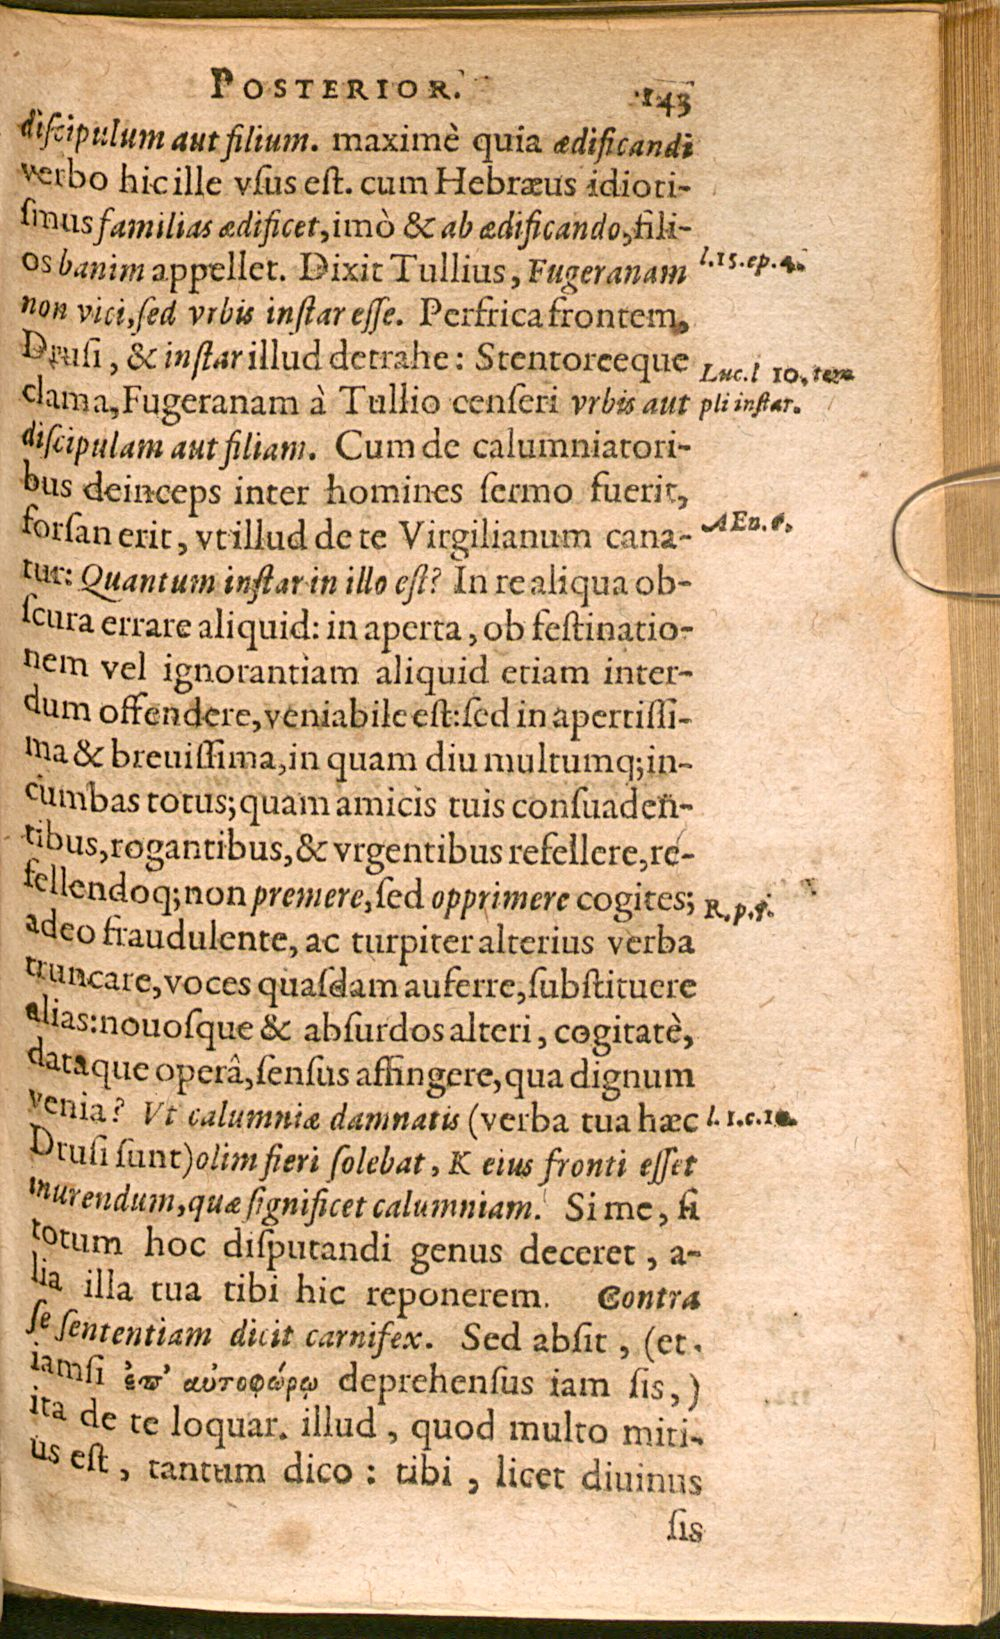 POSTERIOR. 143
discipulum aut filium. maximè quia ædificandi
verbo hic ille vsus est. cum Hebræus idioti-
smus familias ædificet, imò & ab ædificando, fili-
os banim appellet. Dixit Tullius, Fugeranam
l.15.ep.4.
non vici, sed vrbis instar esse. Perfrica frontem,
Drusi, & instar illud detrahe: Stentoreeque
Luc.l 10. tem
clama, Fugeranam à Tullio censeri vrbis aut
pli instar.
discipulam aut filiam. Cum de calumniatori-
bus deinceps inter homines sermo fuerit,
forsan erit, vt illud de te Virgilianum cana-
AEn.6.
tur: Quantum instar in illo est? In re aliqua ob-
scura errare aliquid: in aperta, ob festinatio-
nem vel ignorantiam aliquid etiam inter-
dum offendere, veniabile est: sed in apertissi-
ma & breuissima, in quam diu multumq; in-
cumbas totus; quam amicis tuis consuaden-
tibus, rogantibus, & vrgentibus refellere, re-
fellendoq; non premere, sed opprimere cogites;
R.p.5.
adeo fraudulente, ac turpiter alterius verba
truncare, voces quasdam auferre, substituere
alias: nouosque & absurdos alteri, cogitatè,
dataque operâ, sensus affingere, qua dignum
venia? Vt calumniæ damnatis (verba tua hæc
l.1.c.10.
Drusi sunt) olim fieri solebat, K eius fronti esset
inurendum, quæ significet calumniam. Si me, si
totum hoc disputandi genus deceret, a-
lia illa tua tibi hic reponerem. Contra
se sententiam dicit carnifex. Sed absit, (et-
iamsi ἐπ' αὐτοφώρῳ deprehensus iam sis,)
ita de te loquar. illud, quod multo miti-
us est, tantum dico: tibi, licet diuinus
sis